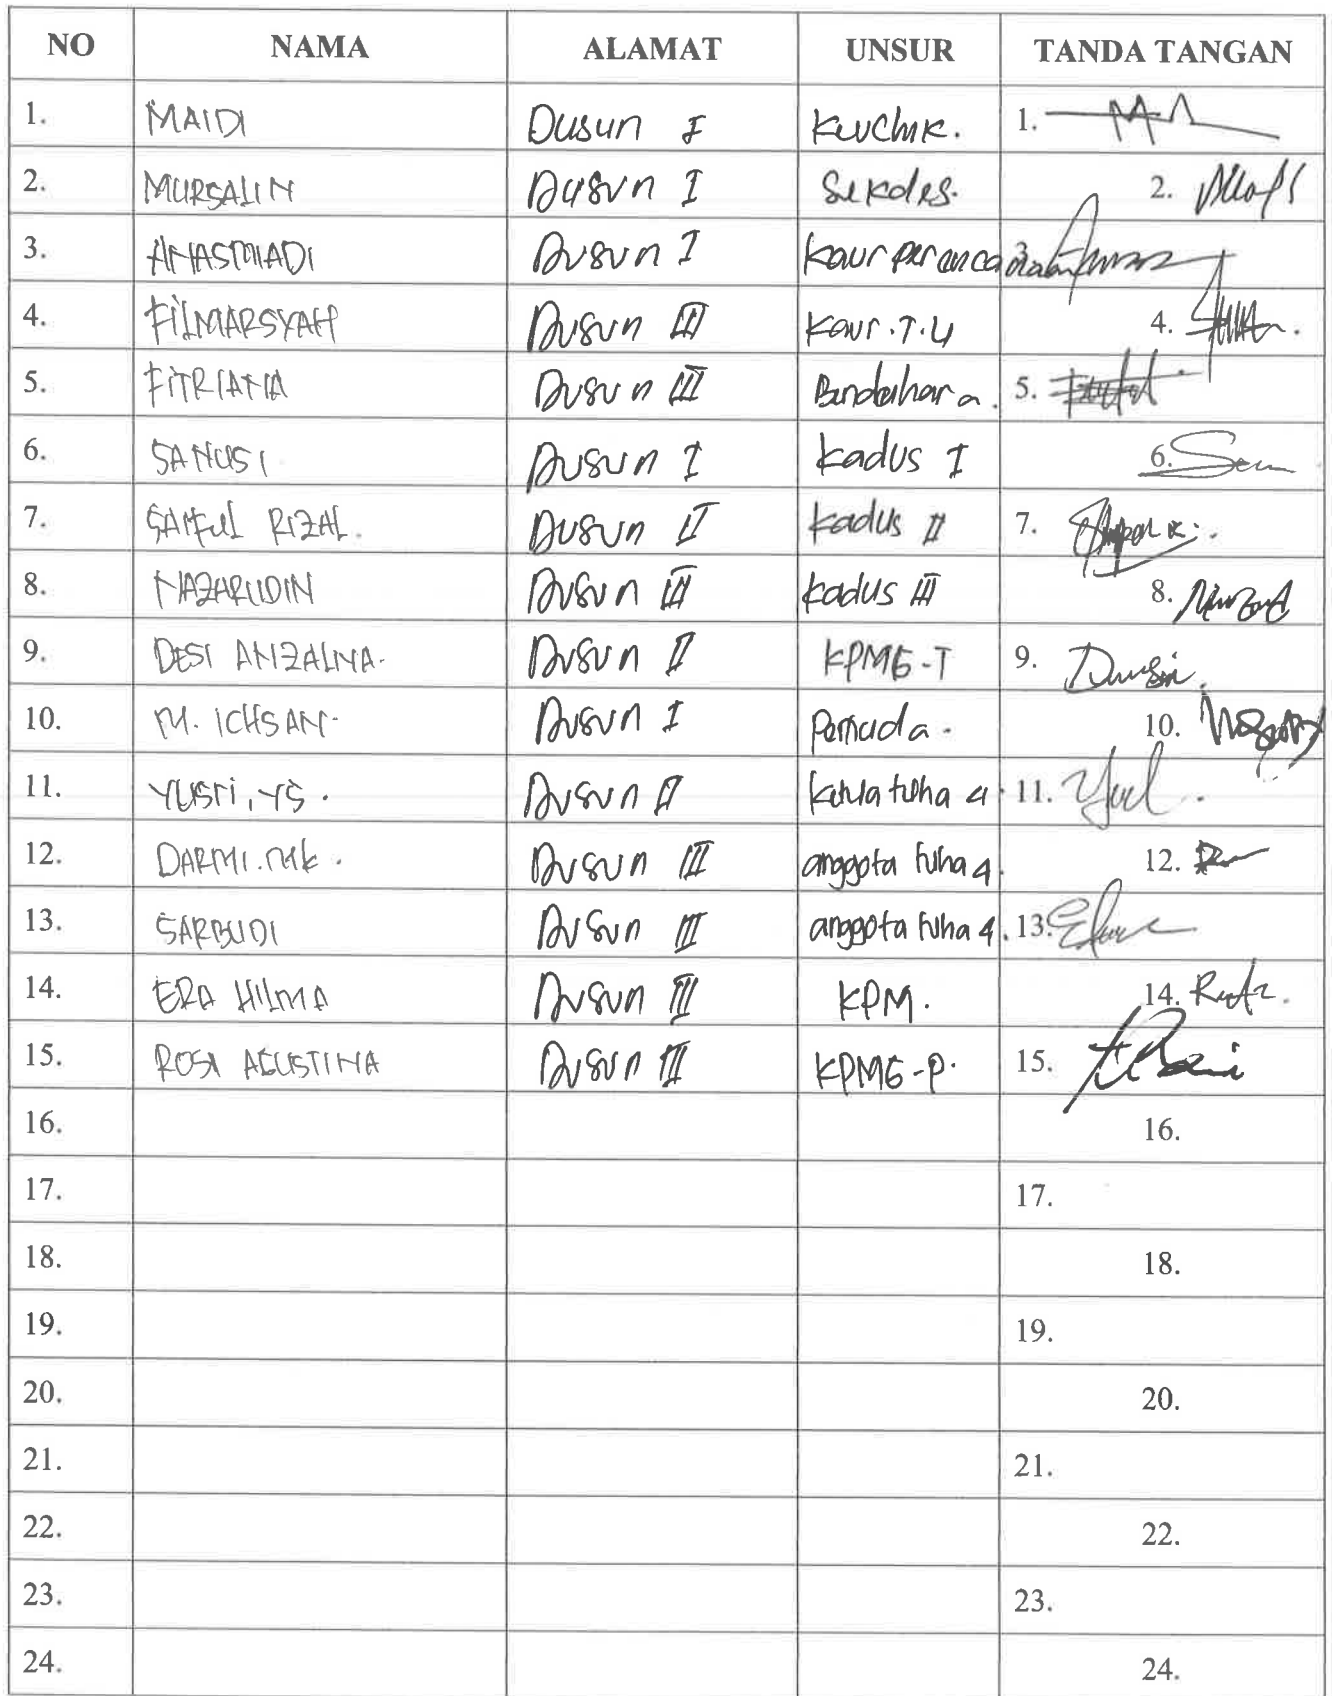 NO NAMA ALAMAT UNSUR TANDA TANGAN
1. MAIDI Dusun I Keuchik. 1.
2. MURSALIN Dusun I Sekdes. 2.
3. ANASMIADI Dusun I Kaur perencanaan 3.
4. FILMARSYAH Dusun III Kaur.T.U 4.
5. FITRIANA Dusun III Bendahara. 5.
6. SANUSI Dusun I Kadus I 6.
7. SAIFUL RIZAL. Dusun II Kadus II 7.
8. NAZARUDIN Dusun III Kadus III 8.
9. DESI ANZALNA. Dusun II KPMG-T 9.
10. M. ICHSAN. Dusun I Pemuda. 10.
11. YUSRI, YS. Dusun II Ketua tuha 4. 11.
12. DARMI.MK. Dusun III anggota tuha 4. 12.
13. SARBUDI Dusun III anggota tuha 4. 13.
14. ERA HILMA Dusun III KPM. 14.
15. ROSI AGUSTINA Dusun III KPMG-P. 15.
16. 16.
17. 17.
18. 18.
19. 19.
20. 20.
21. 21.
22. 22.
23. 23.
24. 24.